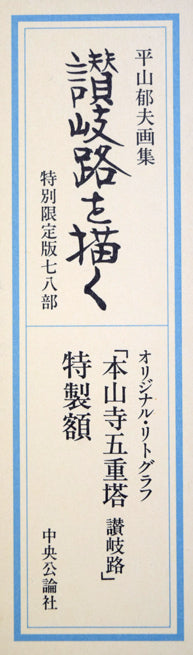 平山郁夫画集
讃岐路を描く
特別限定版七八部
オリジナル・リトグラフ
「本山寺五重塔 讃岐路」
特製額
中央公論社